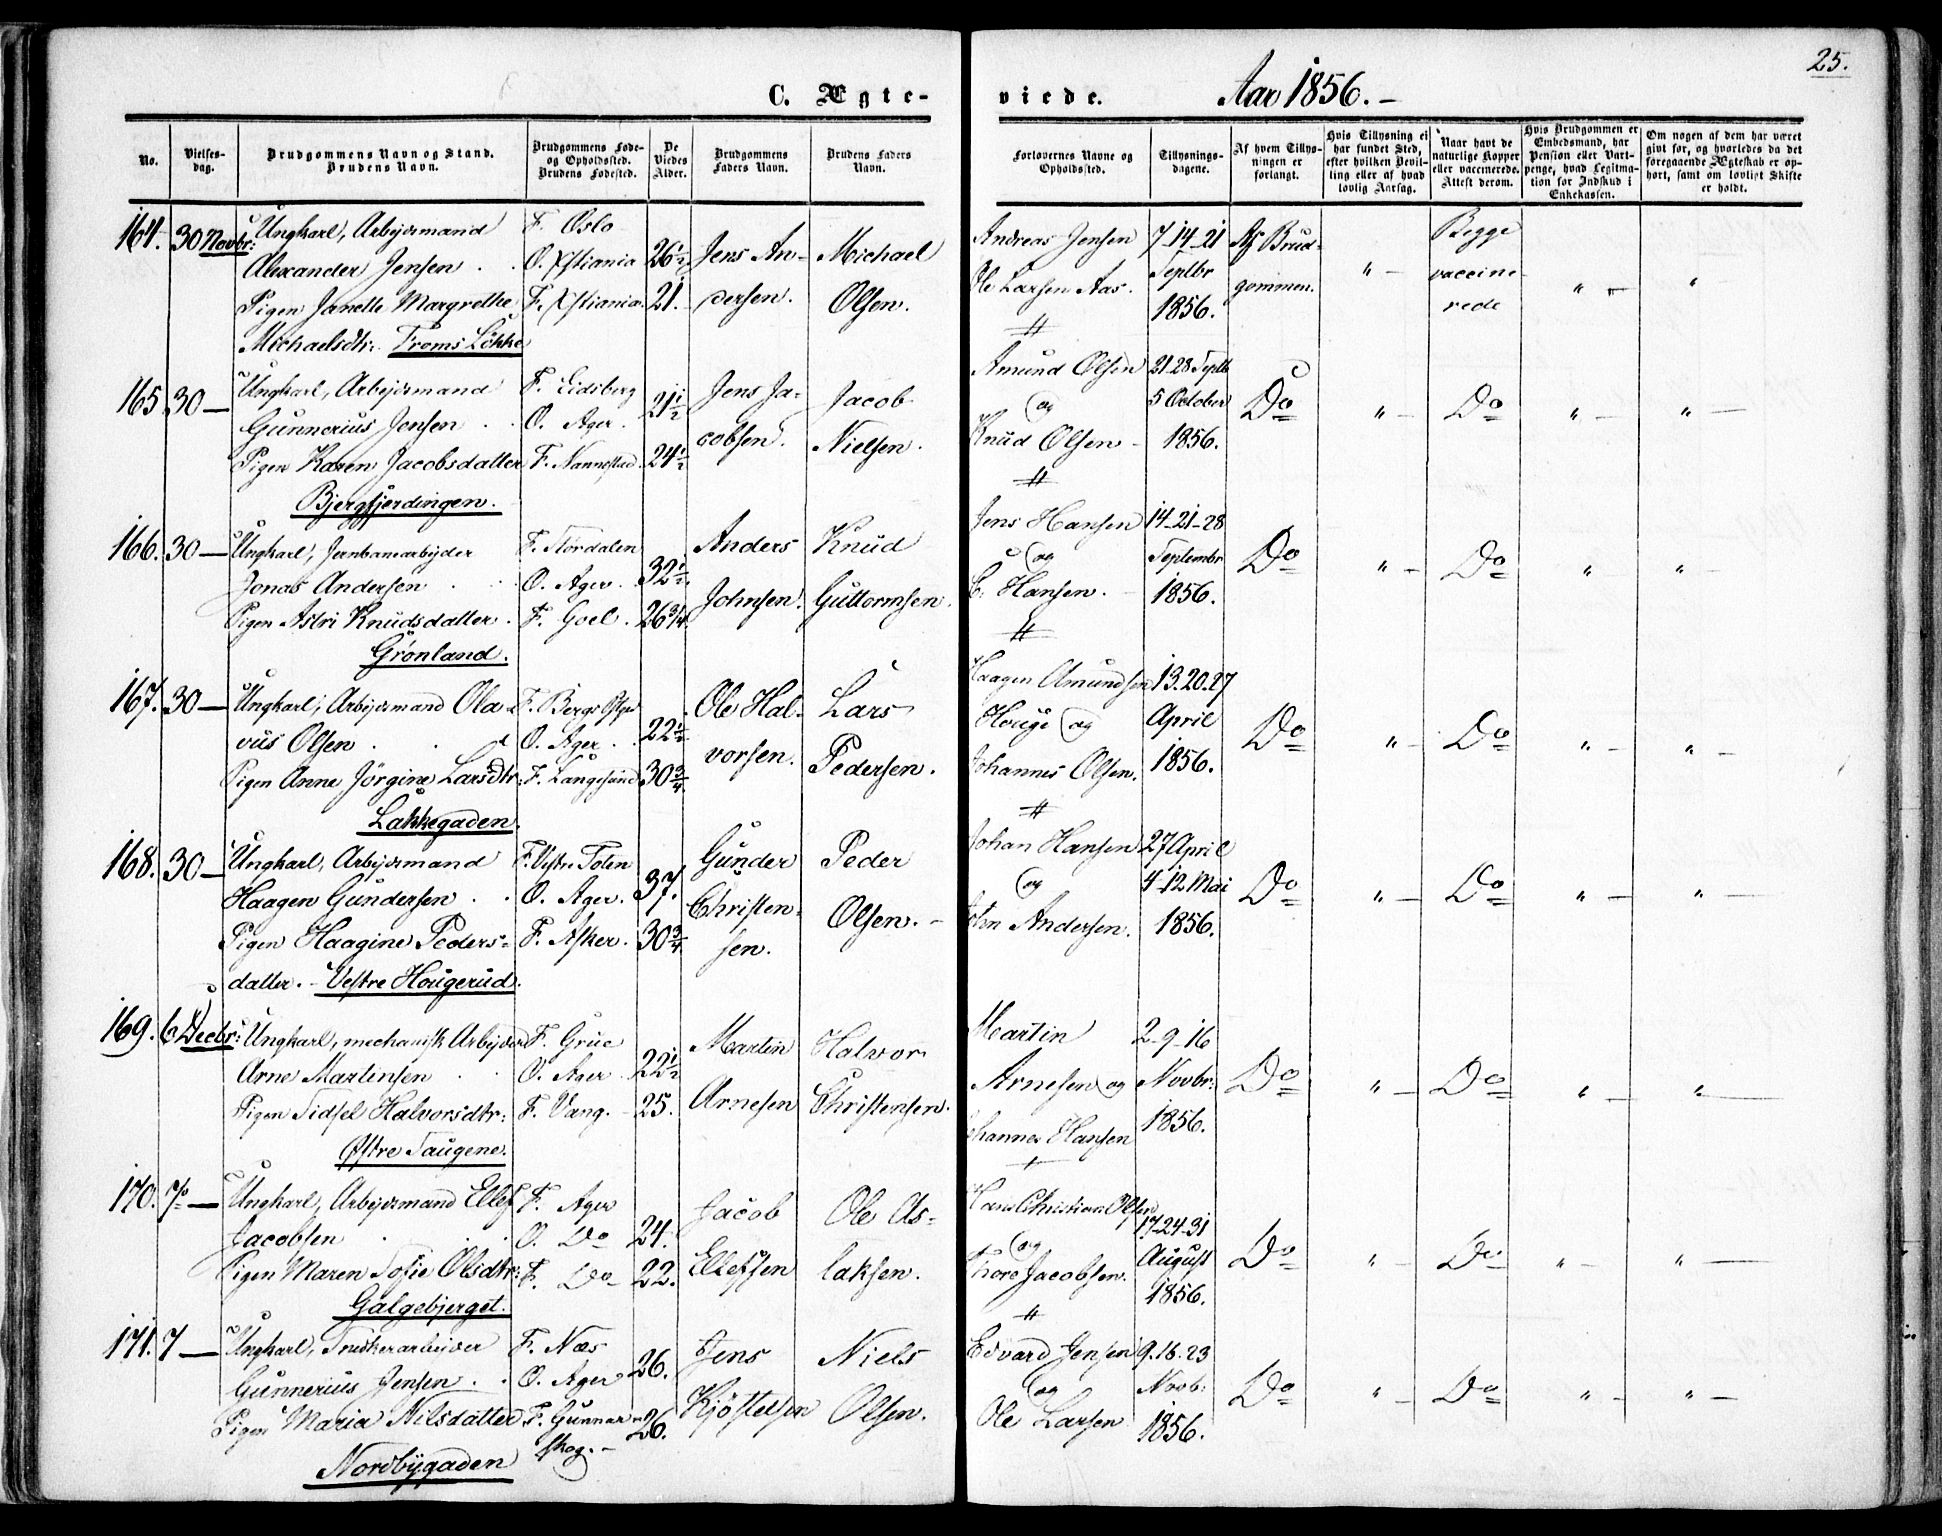 25.
C. Ægteviede. Aar 1856. –
No.
Vielsesdag.
Brudgommens Navn og Stand.
Brudens Navn.
Brudgommens Føde-
og Opholdssted.
Brudens Fødested.
De
Viedes
Alder.
Brudgommens
Faders Navn.
Brudens Faders
Navn.
Forlovernes Navne og
Opholdssted.
Tillysnings-
dagene.
Af hvem Tillys-
ningen er
forlangt.
Hvis Tillysning ei
har fundet Sted,
efter hvilken Bevil-
ling eller af hvad
lovlig Aarsag.
Naar havt de
naturlige Kopper
eller vaccinerede.
Attest derom.
Hvis Brudgommen er
Embedsmand, har
Pension eller Vart-
penge, hvad Legitima-
tion for Indskud i
Enkekassen.
Om nogen af dem har været
givt før, og hvorledes da det
foregaaende Ægteskab er op-
hørt, samt om lovligt Skifte
er holdt.
164. 30 Novbr: Ungkarl, Arbeidsmand F. Oslo
Alexander Jensen . . O. Xstiania 26½ Jens An- Michael
Pigen Janette Margrethe F. Xstiania. 21. dersen. Olsen.
Michaelsdtr. Troms Løkke
Andreas Jensen 7-14-21 Af Brud- Begge
Ole Larsen Aas. Septbr gommen. " – vaccine- " – "
1856. rede
165. 30 — Ungkarl, Arbeidsmand F. Eidsberg
Gunnerius Jensen . . O. Ager. 21½ Jens Ja- Jacob
Pigen Karen Jacobsdatter F. Nannestad. 24½ cobsen. Nielsen.
Bjergfjerdingen.
Amund Olsen 21-28 Septb
og 5 October Do " – Do " – " –
Knud Olsen – 1856.
166. 30 — Ungkarl, Jernbanearbeider F. Størdalen
Jonas Andersen . . . O. Ager. . 32½ Anders Knud
Pigen Astri Knudsdatter. F. Goel. 26¾ Johnsen. Guttormsen.
Grønland.
Jens Hansen 14-21-28
og Septembr Do " – Do " " –
C. Hansen. – 1856.
167. 30 — Ungkarl, Arbeidsmand Ola- F. Bergs
vus Olsen . . . O. Ager. . 22½ Ole Hal- Lars
Pigen Anne Jørgine Larsdtr: F. Langesund 30¾ vorsen. Pedersen.
Lakkegaden.
Haagen Amundsen 13.20.27
Houge og April Do " – Do " – " –
Johannes Olsen. 1856.
168. 30 — Ungkarl, Arbeidsmand F. Vestre Toten
Haagen Gundersen . . O. Ager. 37. Gunder Peder
Pigen Haagine Peders- F. Asker. 30¾ Christen- Olsen. –
datter. – Vestre Hougerud. sen.
Johan Hansen 27 April
og 4-12 Mai Do " – Do " – " –
John Andersen. 1856.
169. 6 Decbr: Ungkarl, mechanisk Arbeider F. Grue
Arne Martinsen . . O. Ager 22½ Martin Halvor
Pigen Sidsel Halvorsdtr: F. Vang. – 25. Arnesen Christensen.
Østre Taugene.
Martin 2-9-16
Arnesen og Novbr: Do " – Do " – "
Johannes Hansen 1856.
170. 7de — Ungkarl, Arbeidsmand Ellef F. Ager
Jacobsen . . . O. Do 24. Jacob Ole As-
Pigen Maren Sofie Olsdtr: F. Do 22. Ellefsen laksen.
Galgebjerget.
Hans Christian Olsen 17-24-31
og August Do " – Do " – " –
Thore Jacobsen. 1856.
171. 7 — Ungkarl, Snedkerarbeider F. Næs
Gunnerius Jensen . . O. Ager 26. Jens Niels
Pigen Maria Nilsdatter F. Gunnar- 26. Kjøstelsen Olsen.
skog. –
Nordbygaden
Edvard Jensen 9.16.23
og Novb: Do " – Do " – " –
Ole Larsen 1856.